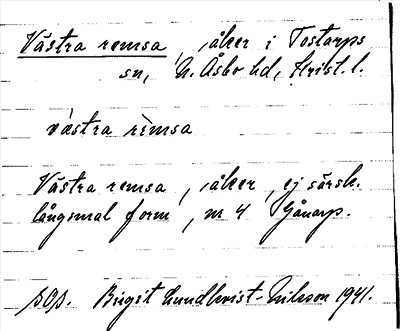 Västra remsa, åker i Tostarps
sn, N. Åsbo hd, Krist. l.
västra rèmsa
Västra remsa, åker, ej särsk.
långsmal form, nr 4 Gånarp.
sgs. Birgit Lundkvist-Nilsson 1941.